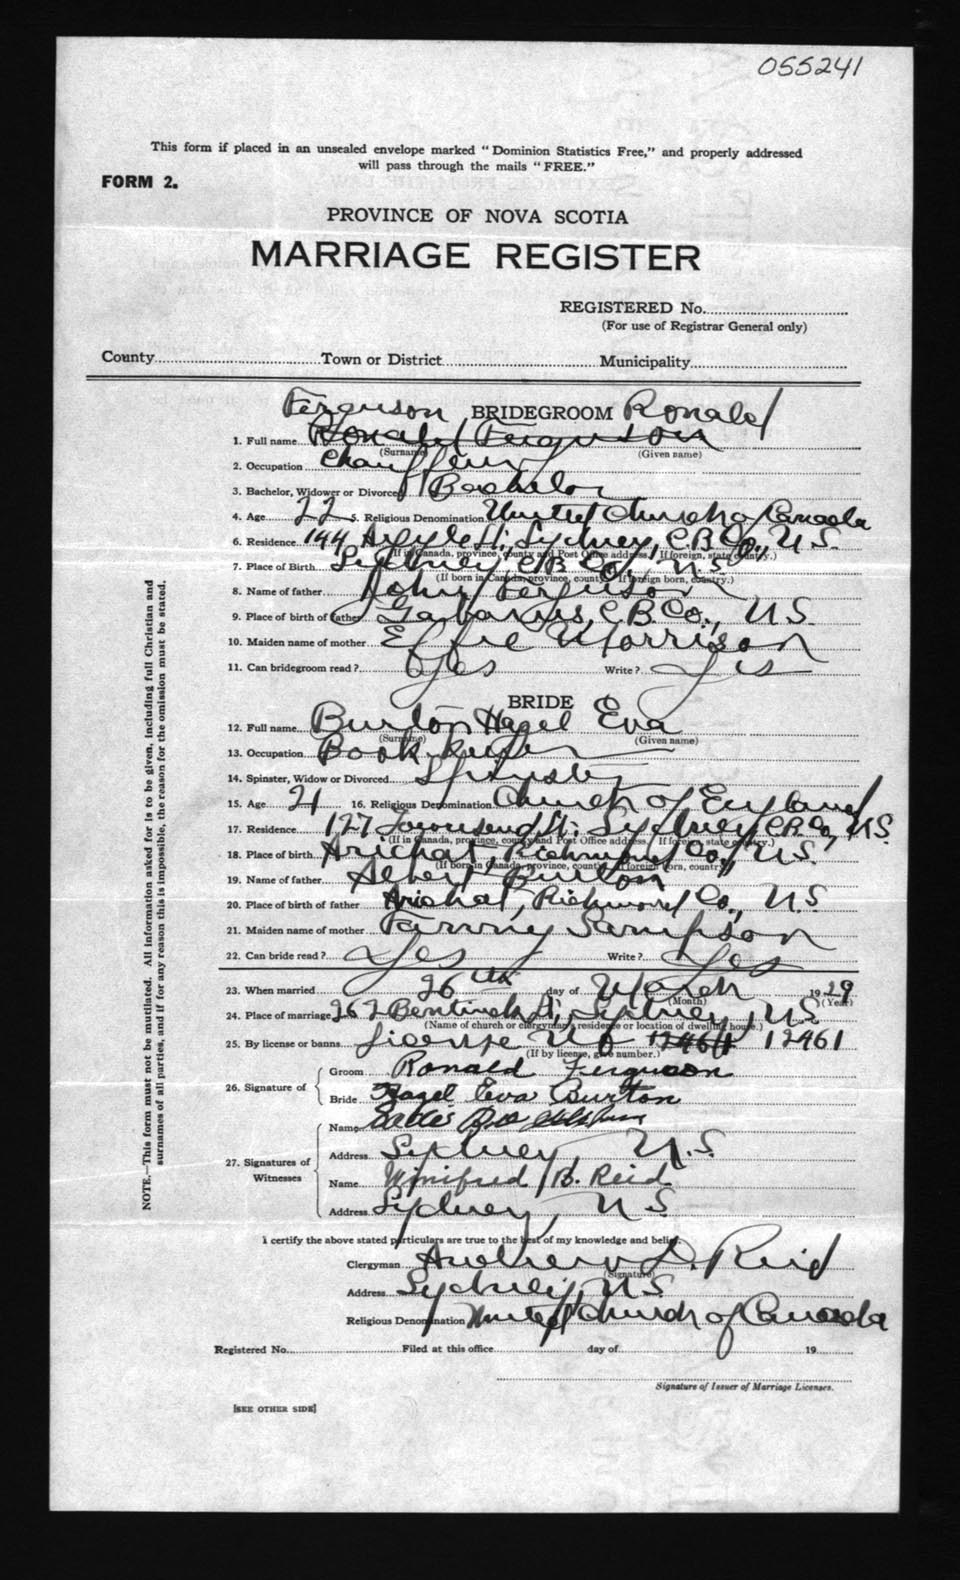 055241
This form if placed in an unsealed envelope marked "Dominion Statistics Free," and properly addressed
will pass through the mails "FREE."
FORM 2.
PROVINCE OF NOVA SCOTIA
MARRIAGE REGISTER
REGISTERED No.
(For use of Registrar General only)
County Town or District Municipality
Ferguson BRIDEGROOM Ronald
1. Full name Ronald Ferguson
(Surname) (Given name)
2. Occupation Chauffeur
3. Bachelor, Widower or Divorced Bachelor
4. Age 22 5. Religious Denomination United Church of Canada
6. Residence 144 Argyle St., Sydney, C.B. Co., N.S.
(If in Canada, province, county and Post Office address. If foreign, state country.)
7. Place of Birth Sydney, C.B. Co., N.S.
(If born in Canada, province, county. If foreign born, country.)
8. Name of father John Ferguson
9. Place of birth of father Gabarus, C.B. Co., N.S.
10. Maiden name of mother Effie Morrison
11. Can bridegroom read? Yes Write? Yes
BRIDE
12. Full name Burton Hazel Eva
(Surname) (Given name)
13. Occupation Book-keeper
14. Spinster, Widow or Divorced Spinster
15. Age 21 16. Religious Denomination Church of England
17. Residence 127 Townsend St. Sydney C.B. Co, N.S.
(If in Canada, province, county and Post Office address. If foreign, state country.)
18. Place of birth Arichat, Richmond Co., N.S.
(If born in Canada, province, county. If foreign born, country.)
19. Name of father Albert Burton
20. Place of birth of father Arichat, Richmond Co., N.S.
21. Maiden name of mother Fanny Sampson
22. Can bride read? Yes Write? Yes
23. When married 26th day of March 1929
(Month) (Year)
24. Place of marriage 262 Bentinck St., Sydney, N.S.
(Name of church or clergyman's residence or location of dwelling house.)
25. By license or banns License No 12461 12461
(If by license, give number.)
26. Signature of
Groom Ronald Ferguson
Bride Hazel Eva Burton
27. Signatures of Witnesses
Name
Address Sydney, N.S.
Name Winifred B. Reid
Address Sydney, N.S.
I certify the above stated particulars are true to the best of my knowledge and belief.
Clergyman Andrew D. Reid
(Signature)
Address Sydney, N.S.
Religious Denomination United Church of Canada
Registered No. Filed at this office day of 19
Signature of Issuer of Marriage Licenses.
[SEE OTHER SIDE]
NOTE.—This form must not be mutilated. All information asked for is to be given, including full Christian and
surnames of all parties, and if for any reason this is impossible, the reason for the omission must be stated.